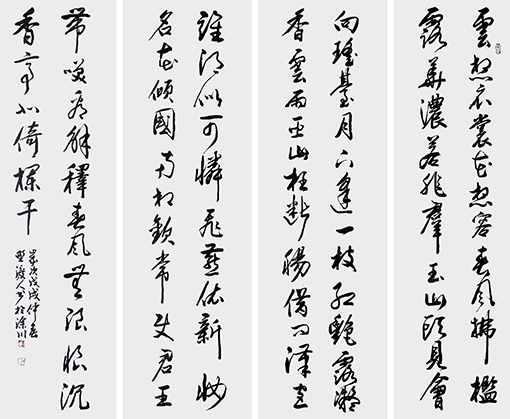 雲想衣裳花想容春風拂檻
露華濃若非羣玉山頭見會
向瑤臺月下逢一枝紅艷露凝
香雲雨巫山枉斷腸借問漢宮
誰得似可憐飛燕依新妝
名花傾國兩相歡常使君王
帶咲看解釋春風無限恨沉
香亭北倚欄干
歲次戊戌仲春
野渡人書於滁川